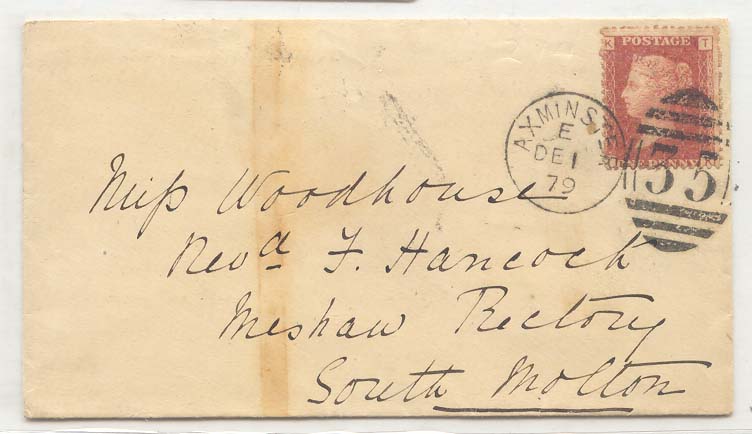 POSTAGE
K T
AXMINSTER
E
DE 1
79
ONE PENNY
35
Miss Woodhouse
Revd F. Hancock
Meshaw Rectory
South Molton